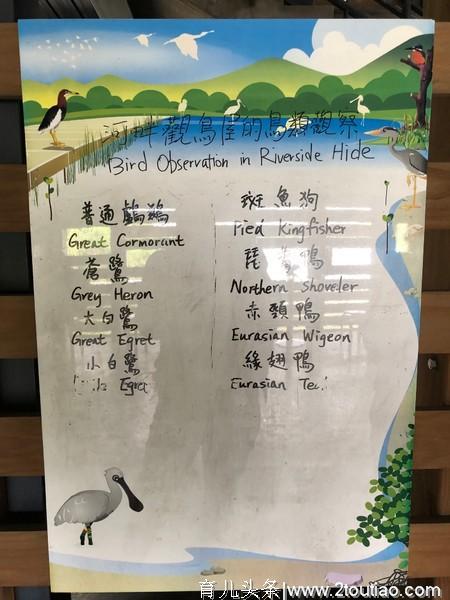 河畔觀鳥屋的鳥類觀察
Bird Observation in Riverside Hide
普通鸕鶿
Great Cormorant
蒼鷺
Grey Heron
大白鷺
Great Egret
小白鷺
Egret
斑魚狗
Pied Kingfisher
琵嘴鴨
Northern Shoveler
赤頸鴨
Eurasian Wigeon
綠翅鴨
Eurasian
育儿头条|www.2toutiao.com